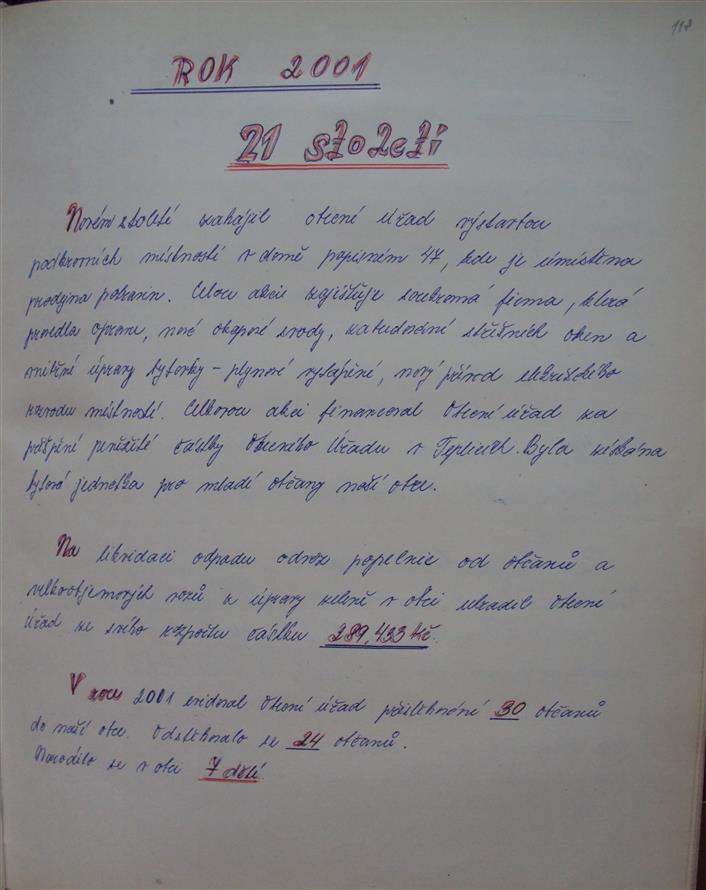 118
ROK 2001
21 století
Novém století zahájil obecné úřad výstavbou
podkrovních místností v domě popisném 47, kde je umístěna
prodejna potravin. Celou akci zajišťuje soukromá firma, která
provedla opravu, nové okapové svody, zabudování střešních oken a
vnitřní úpravy bytovky - plynové vytápění, nový přívod elektrického
rozvodu místností. Celkovou akci financoval Obecní úřad za
peněžité částky Obecního Úřadu v Teplicích. Byla získána
bytová jednotka pro mladé občany naší obce.
Na likvidaci odpadu odvoz popelnic od občanů a
velkoobjemových vozů a úpravy zeleně v obci uhradil Obecní
Úřad ze svého rozpočtu částku 289,433 Kč.
V roce 2001 evidoval Obecní úřad přistěhovéní 30 občanů
do naší obce. Odstěhovalo se 24 občanů.
Narodilo se v obci 7 dětí.